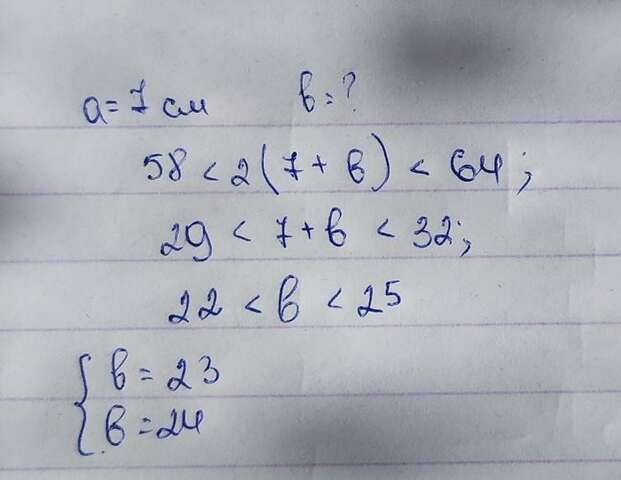 a = 7 см в = ?
58 < 2(7 + в) < 64;
29 < 7 + в < 32;
22 < в < 25
{ в = 23
в = 24